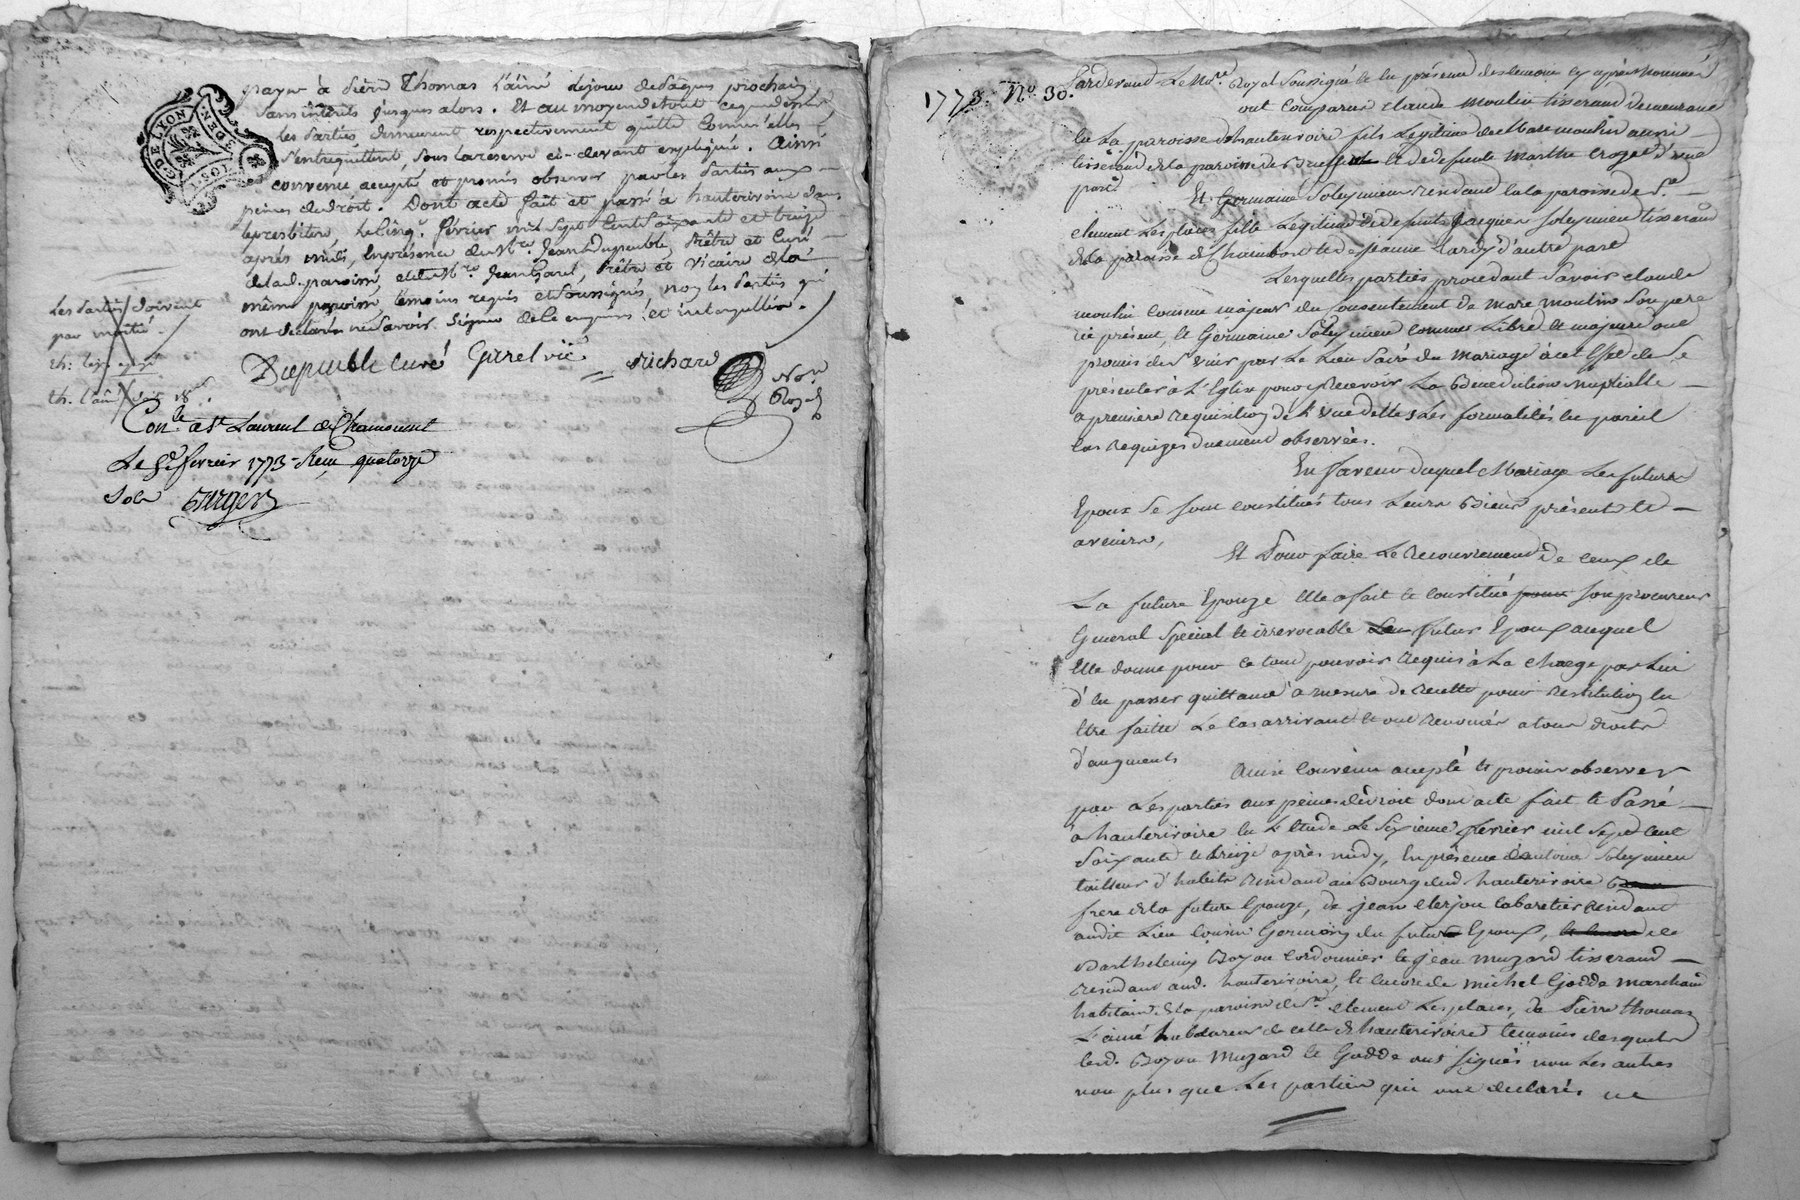 payer à pierre Thomas L'ainé Le jour de pâques prochain
sans intérêts jusques alors. Et au moyen de tout ce que dessus
les Parties demeurent respectivement quitte comme elles
s'entrequittent, sous la reserve ci-devant expliquée. Ainsi
convenu accepté et promis observer par les Parties aux
peines de droit. Dont acte fait et passé à hauterivoire dans
le presbitère, Le cinq. février mil sept cent soixante et treize
après midi, En présence de Mre Jean Dupeuble Prêtre et Curé
de lad. paroisse, et de Mre Jean Garel, Prêtre et Vicaire de la
même paroisse témoins requis et soussignés, non les Parties qui
ont déclaré ne savoir signer de ce enquises et interpellées.
Les Parties doivent
par moitié.
G. DE LYON
Dupeuble curé Garel vic. Richard
Nore
Royal
Con.le a St Laurent de Chamousset
Le 8e fevrier 1773 Reçu quatorze
sols Burger
1773. No. 30.
Pardevant Le Nore Royal soussigné et en présence des temoins cy après nommés
ont comparus claude moulin tisserand demeurant
en La paroisse d'hauterivoire fils Légitime de Marc moulin aussi
tisserand de la paroisse de Brussieu et de defunte Marthe Croze d'une
part
Et Germaine Soleymieu residand en la paroisse de St
clement Les places fille Legitime de defunts Jacques Soleymieu tisserand
de la paroisse de Chambost et de Jeanne Lardy d'autre part
Lesquelles parties procedant Savoir claude
moulin comme majeur du consentement de Marc moulin son pere
ici présent, et Germaine Soleymieu comme Libre et majeure ont
promis de s'unir par Le Lien Sacré du Mariage à cet effet de se
présenter à L'Eglise pour y Recevoir La Benediction nuptialle
a premiere requisition de L'une d'elles Les formalités en pareil
cas requises duement observées.
En faveur duquel Mariage Les futurs
Epoux se sont constitués tous Leurs Biens présents et
avenirs,
Et Pour faire Le recouvrement de ceux de
La future Epouze elle a fait et constitué pour son procureur
General Special et irrevocable Led. futur Epoux auquel
Elle donne pour ce tout pouvoir requis à La charge par Lui
d'en passer quittance a mesure de recette pour restitution en
être faitte Le cas arrivant et ont renoncés a tous droits
d'augments
Ainsi convenu accepté et promis observer
par Les parties aux peines de droit dont acte fait et Passé
à hauterivoire en L'etude Le sixieme fevrier mil sept cent
Soixante et treize après midy, En présence d'antoine Soleymieu
tailleur d'habits residand au Bourg dud. hauterivoire
frere de la future Epouze, de jean clerjon cabaretier residant
audit Lieu cousin Germain du futur Epoux, de
Barthelemy Boyou cordonnier et jean muzard tisserand
residant aud. hauterivoire, et encore de michel Godde marchand
habitant de la paroisse de St clement Les places, de Pierre thomas
L'ainé Laboureur de celle d'hauterivoire temoins desquels
led. Boyou Muzard et Godde ont signés non Les autres
non plus que Les parties qui ont declarés ne